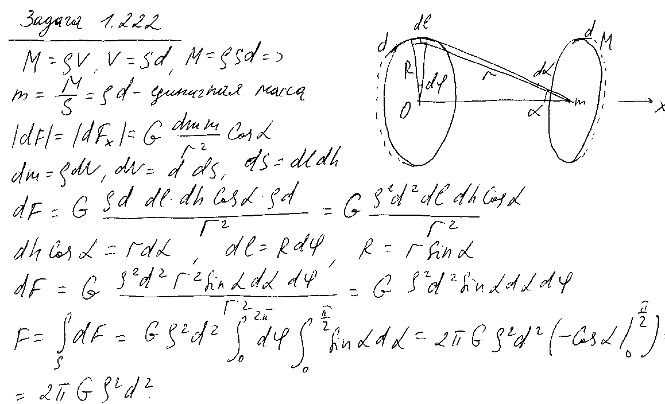 Задача 1.222
M = ρV, V = Sd, M = ρSd ⇒
m = M/S = ρd - единичная масса
|dF| = |dFx| = G dm m / r² Cos α
dm = ρdV, dV = d dS, dS = dl dh
dF = G ρd dl · dh Cos α · ρd / r² = G ρ²d² dl dh Cos α / r²
dh Cos α = r dα, dl = R dφ, R = r Sin α
dF = G ρ²d² r² Sin α dα dφ / r² = G ρ²d² Sin α dα dφ
F = ∫S dF = G ρ²d² ∫₀^2π dφ ∫₀^π/2 Sin α dα = 2π G ρ²d² (-Cos α |₀^π/2) =
= 2π G ρ²d².
d dl d M
R dφ r dα
O α m x